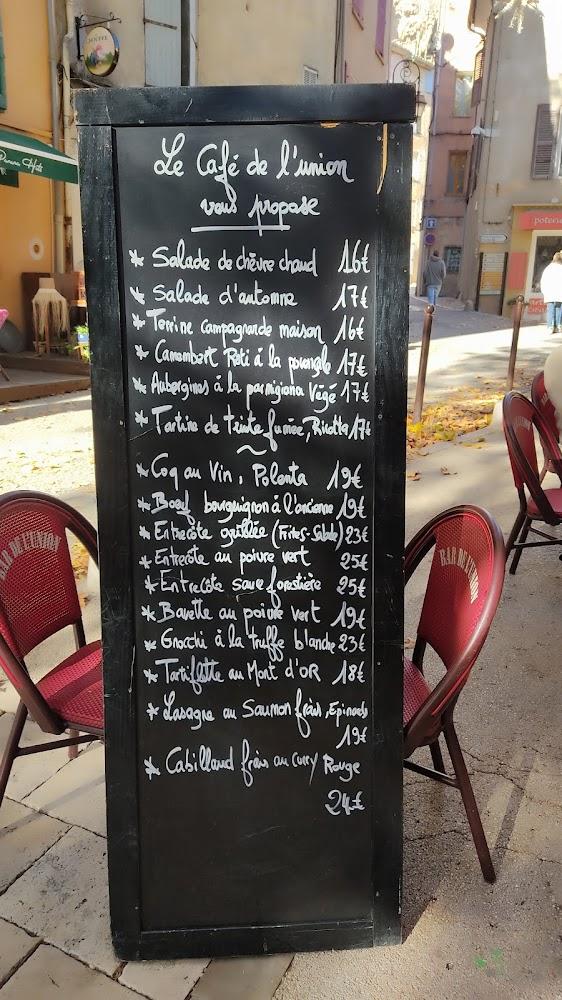 Le Café de l'union
vous propose
* Salade de chèvre chaud 16€
* Salade d'automne 17€
* Terrine campagnarde maison 16€
* Camembert Roti à la provençale 17€
* Aubergines à la parmigiana Végé 17€
* Tartine de truite fumée, Ricotta 17€
~
* Coq au Vin, Polenta 19€
* Boeuf bourguignon à l'ancienne 19€
* Entrecôte grillée (Frites-Salade) 23€
* Entrecote au poivre vert 25€
* Entrecôte sauce forestière 25€
* Bavette au poivre vert 19€
* Gnocchi à la truffe blanche 23€
* Tartiflette au Mont d'OR 18€
* Lasagne au Saumon frais, Epinards
19€
* Cabillaud frais au curry Rouge
24€
BAR DE L'UNION
BAR DE L'UNION
Panama Hats